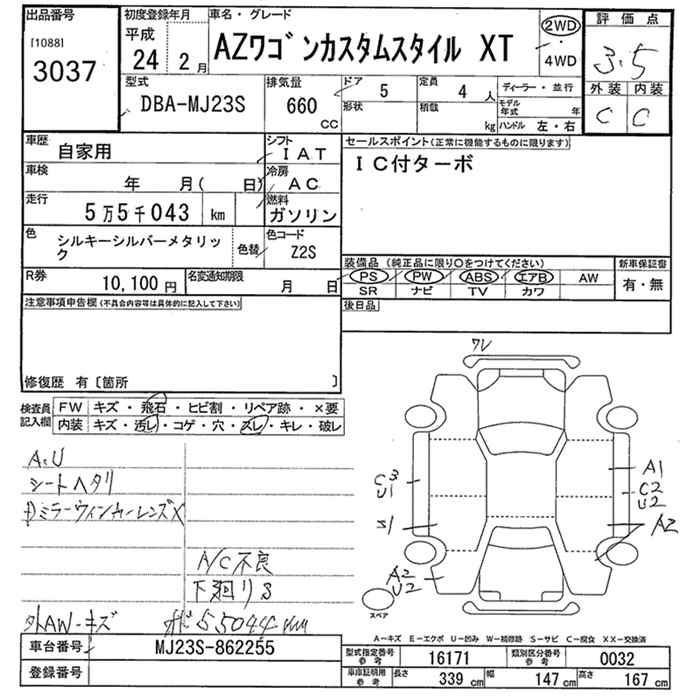 出品番号
[1088]
3037
初度登録年月
平成
24 2月
車名・グレード
AZワゴンカスタムスタイル XT
2WD
・
4WD
評価点
3.5
外装 内装
C C
型式
DBA-MJ23S
排気量
660
cc
ドア 5
形状
定員 4人
積載 kg
ディーラー・並行
モデル年式 年
ハンドル 左・右
車歴
自家用
シフト
IAT
車検
年 月( 日)
冷房
AC
走行
5万5千043 km
燃料
ガソリン
色
シルキーシルバーメタリック
色替
色コード
Z2S
R券
10,100円
名変通知期限
月 日
セールスポイント(正常に機能するものに限ります)
IC付ターボ
装備品 (純正品に限り○をつけてください)
PS PW ABS エアB AW
SR ナビ TV カワ
新車保証書
有・無
後日品
注意事項申告欄(不具合内容等は具体的に記入して下さい)
修復歴 有〔箇所 〕
検査員記入欄
FW キズ・飛石・ヒビ割・リペア跡・×要
内装 キズ・汚レ・コゲ・穴・スレ・キレ・破レ
A,U
シートヘタリ
ミラーウィンカーレンズX
A/C不良
下廻りS
外AW-キズ
55044km
ワレ
C3
U1
S1
A2
U2
A1
C2
U2
A2
スペア
A－キズ E－エクボ U－凹み W－補修跡 S－サビ C－腐食 XX－交換済
車台番号
MJ23S-862255
登録番号
型式指定番号 参考
16171
類別区分番号 参考
0032
車庫証明用 参考
長さ 339cm
幅 147cm
高さ 167cm